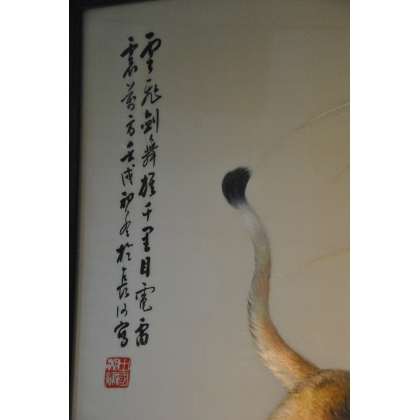 雲飛劍舞雄千里目電雷
震萬方壬戌初冬於長沙寫